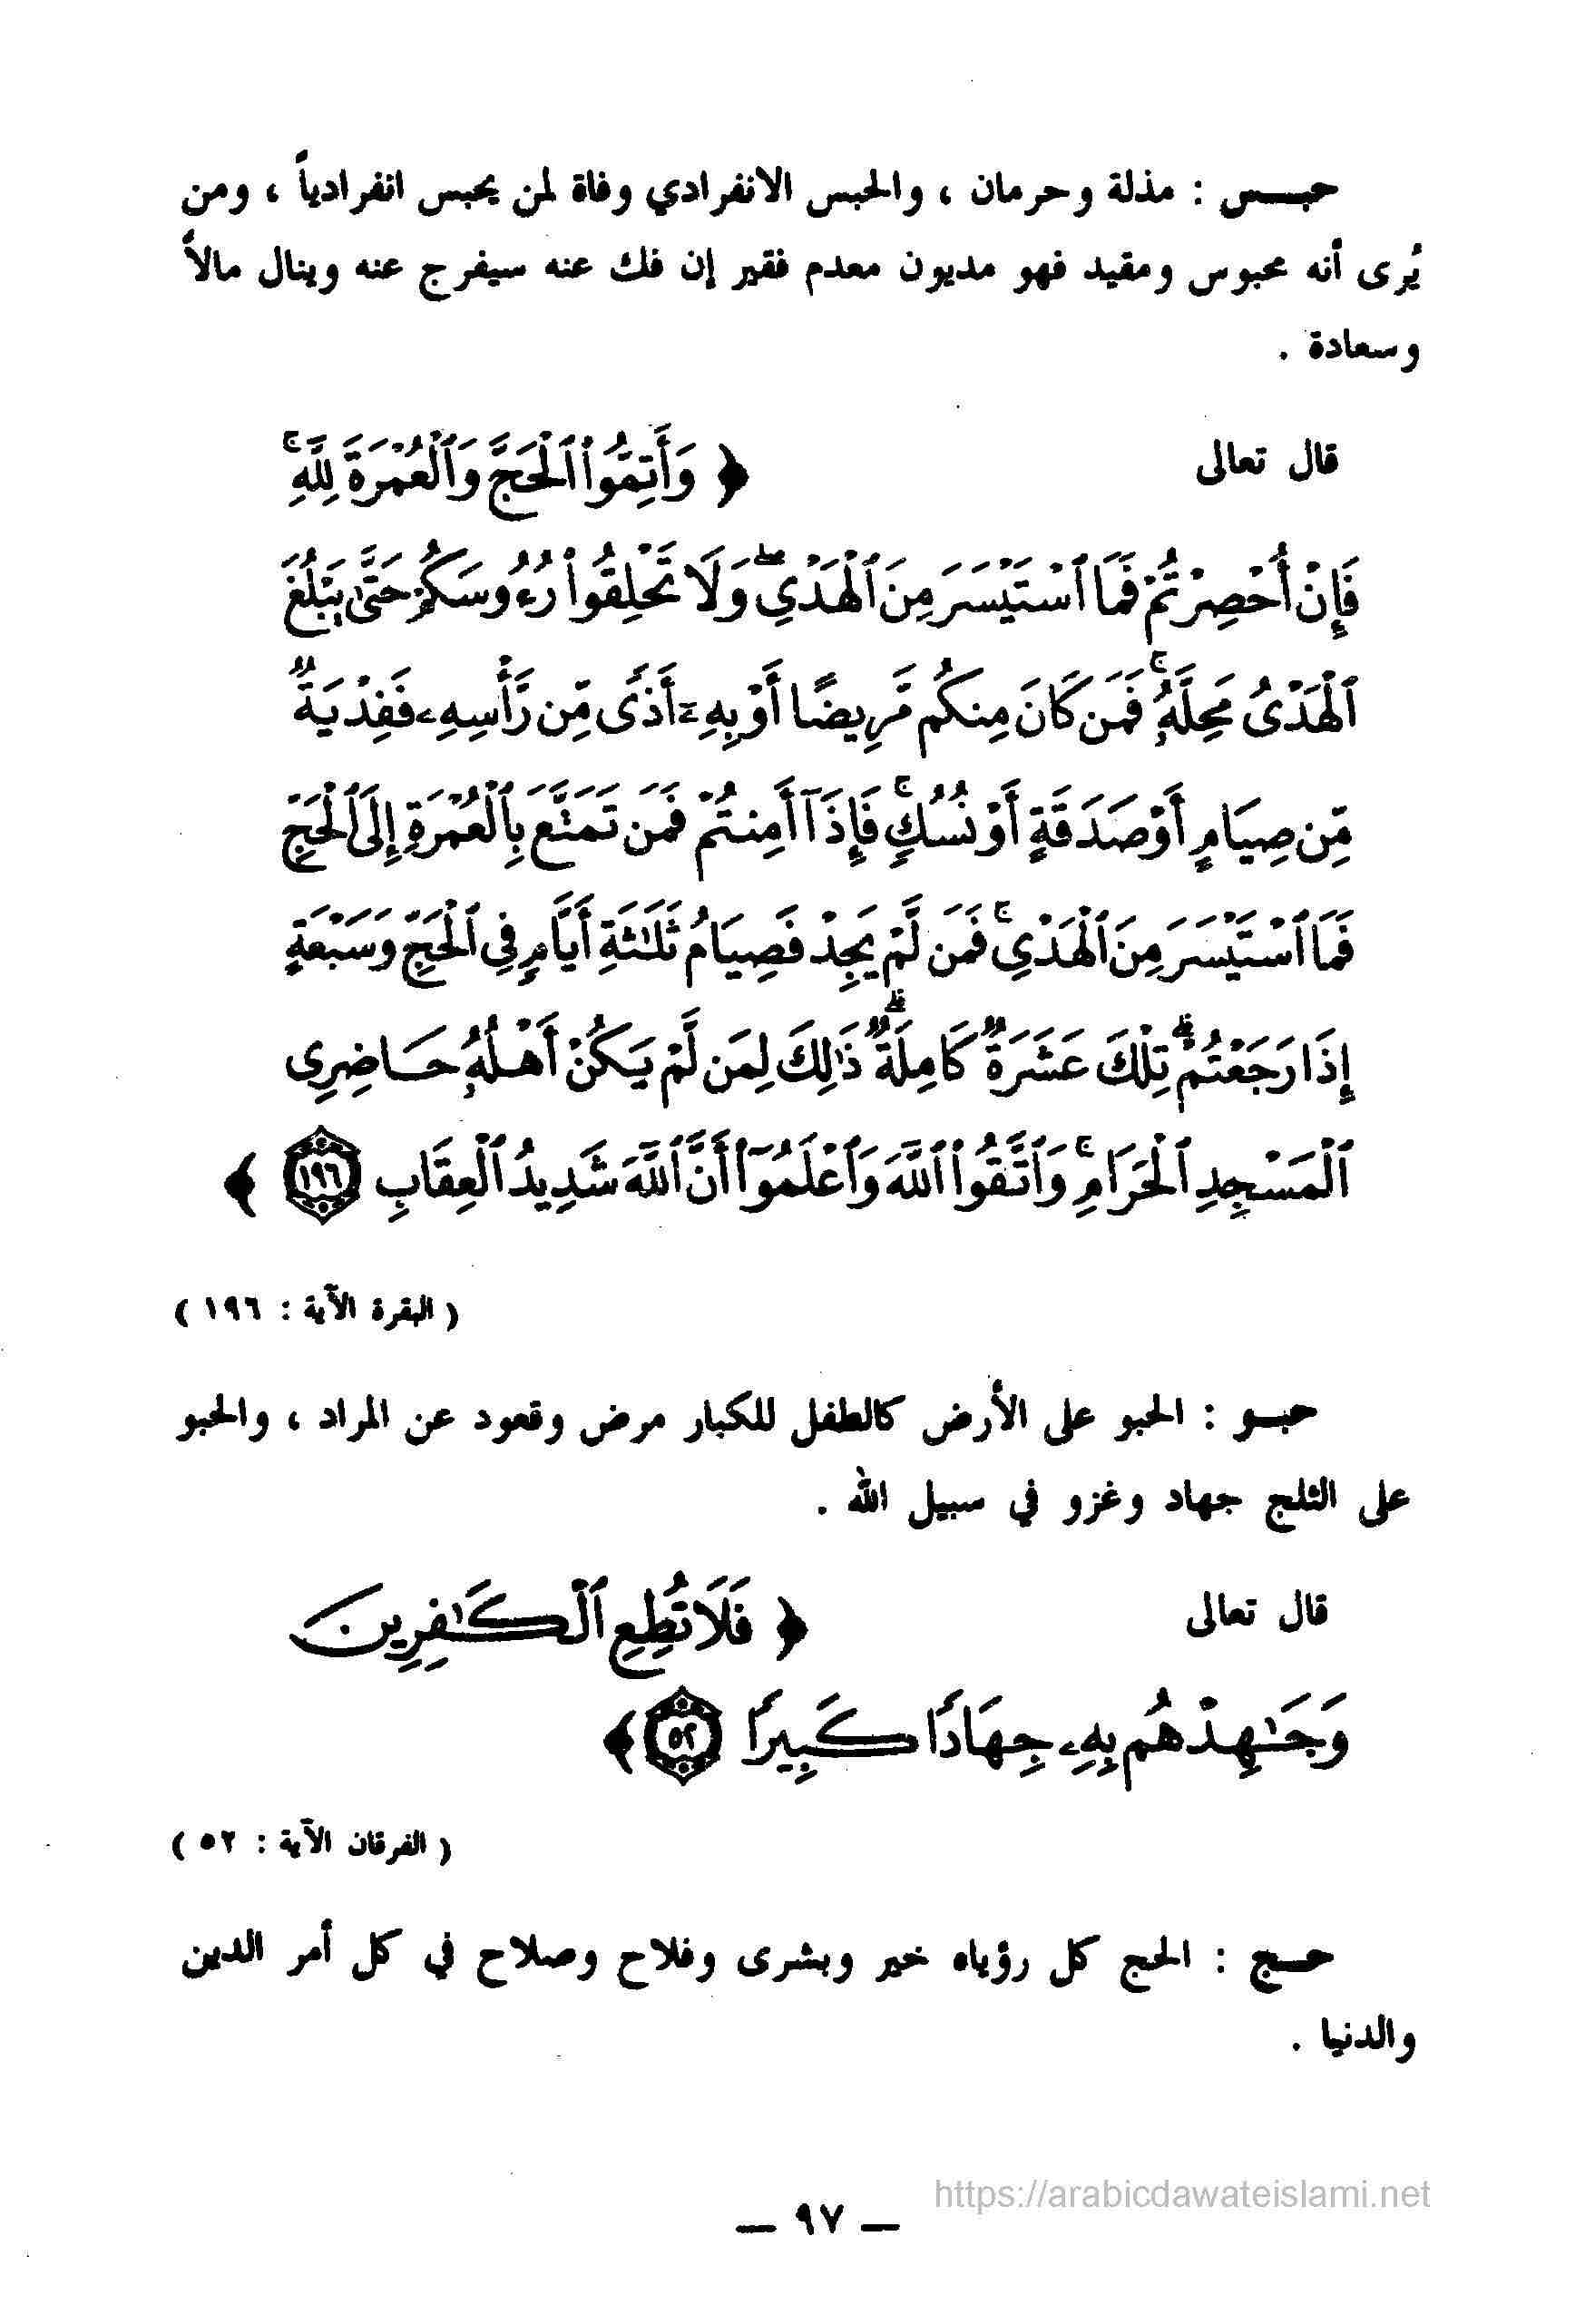 حبـــس : مذلة وحرمان ، والحبس الانفرادي وفاة لمن يحبس انفرادياً ، ومن
يُرى أنه محبوس ومقيد فهو مديون معدم فقير إن فك عنه سيفرج عنه وينال مالاً
وسعادة .
قال تعالى ﴿ وَأَتِمُّوا۟ ٱلْحَجَّ وَٱلْعُمْرَةَ لِلَّهِۚ
فَإِنْ أُحْصِرْتُمْ فَمَا ٱسْتَيْسَرَ مِنَ ٱلْهَدْىِۖ وَلَا تَحْلِقُوا۟ رُءُوسَكُمْ حَتَّىٰ يَبْلُغَ
ٱلْهَدْىُ مَحِلَّهُۥۚ فَمَن كَانَ مِنكُم مَّرِيضًا أَوْ بِهِۦٓ أَذًى مِّن رَّأْسِهِۦ فَفِدْيَةٌ
مِّن صِيَامٍ أَوْ صَدَقَةٍ أَوْ نُسُكٍۚ فَإِذَآ أَمِنتُمْ فَمَن تَمَتَّعَ بِٱلْعُمْرَةِ إِلَى ٱلْحَجِّ
فَمَا ٱسْتَيْسَرَ مِنَ ٱلْهَدْىِۚ فَمَن لَّمْ يَجِدْ فَصِيَامُ ثَلَٰثَةِ أَيَّامٍ فِى ٱلْحَجِّ وَسَبْعَةٍ
إِذَا رَجَعْتُمْۗ تِلْكَ عَشَرَةٌ كَامِلَةٌۗ ذَٰلِكَ لِمَن لَّمْ يَكُنْ أَهْلُهُۥ حَاضِرِى
ٱلْمَسْجِدِ ٱلْحَرَامِۚ وَٱتَّقُوا۟ ٱللَّهَ وَٱعْلَمُوٓا۟ أَنَّ ٱللَّهَ شَدِيدُ ٱلْعِقَابِ ١٩٦ ﴾
( البقرة الآية : ١٩٦ )
حبـو : الحبو على الأرض كالطفل للكبار مرض وقعود عن المراد ، والحبو
على الثلج جهاد وغزو في سبيل الله .
قال تعالى ﴿ فَلَا تُطِعِ ٱلْكَٰفِرِينَ
وَجَٰهِدْهُم بِهِۦ جِهَادًا كَبِيرًا ٥٢ ﴾
( الفرقان الآية : ٥٢ )
حـج : الحج كل رؤياه خير وبشرى وفلاح وصلاح في كل أمر الدين
والدنيا .
https://arabicdawateislami.net
— ٩٧ —